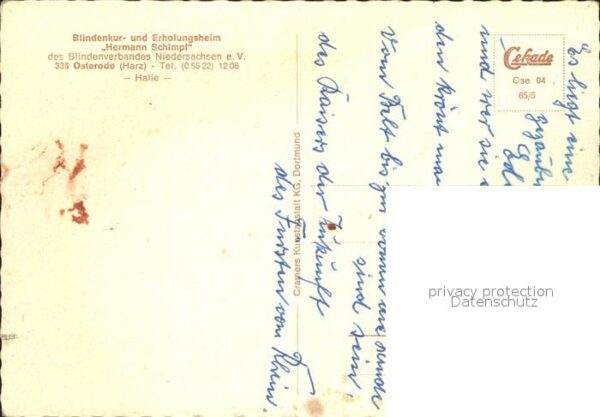 Blindenkur- und Erholungsheim
„Hermann Schimpf"
des Blindenverbandes Niedersachsen e. V.
336 Osterode (Harz) - Tel. (0 55 22) 12 06
— Halle —
Cramers Kunstanstalt KG, Dortmund
Cekade
Ose 04
65/5
Es liegt eine
und wer sie
den krönt
vom Belt bis zum
sind sein
des Kaisers der Zukunft
des Fürsten vom Rhein.
privacy protection
Datenschutz